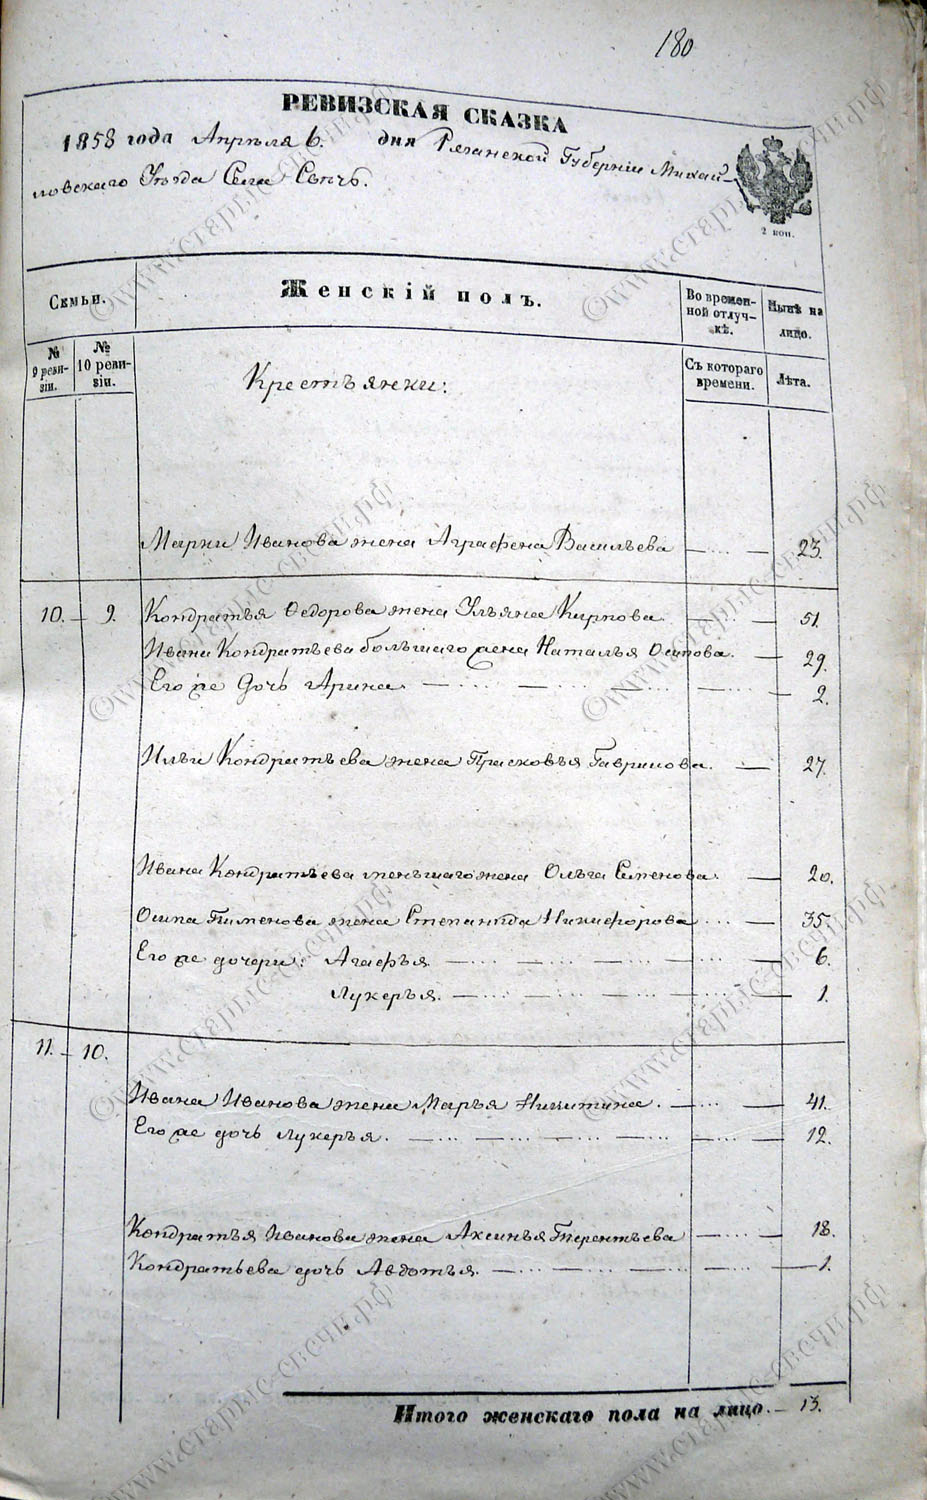 180
РЕВИЗСКАЯ СКАЗКА
1858 года Апрѣля 6. дня Рязанской Губерніи Михай-
ловскаго Уѣзда Села
2 коп.
Семьи. Женскій полъ. Во времен-ной отлуч-кѣ. Нынѣ на лицо.
№ 9 реви-зіи. № 10 реви-зіи. Съ котораго времени. Лѣта.
Крестьянки:
Марки Иванова жена Аграфена Васильева — 23.
10. — 9. Кондратья Ѳедорова жена Ульяна Карпова — 51.
Ивана Кондратьева большаго жена Наталья Осипова. — 29.
Его же дочь Арина — 2.
Ильи Кондратьева жена Прасковья Гаврилова. — 27.
Ивана Кондратьева меньшаго жена Ольга Семенова. — 20.
Осипа Пименова жена Степанида Никифорова — 35.
Его же дочери: Агафья — 6.
Лукерья. — 1.
11. — 10.
Ивана Иванова жена Марья Никитина. — 41.
Его же дочь Лукерья. — 12.
Кондратья Иванова жена Аксинья Терентьева — 18.
Кондратьева дочь Авдотья. — 1.
Итого женскаго пола на лицо. — 13.
©www.старые-свечи.рф